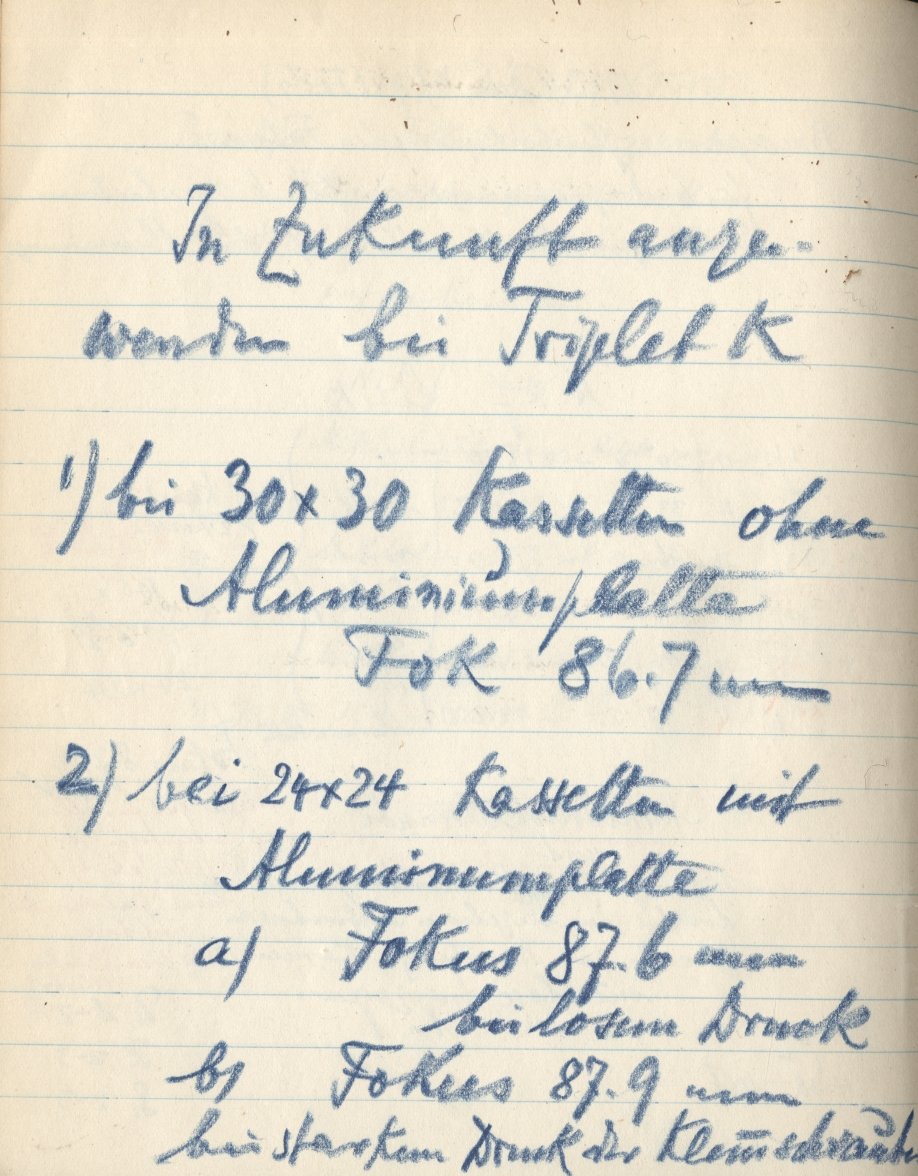 In Zukunft anzu-
wenden bei Triplet K
1) bei 30x30 Kassetten ohne
Aluminiumplatte
Fok 86.7 mm
2) bei 24x24 Kassetten mit
Aluminumplatte
a) Fokus 87.6 mm
bei losem Druck
b) Fokus 87.9 mm
bei starkem Druck der Klem̅schrauben